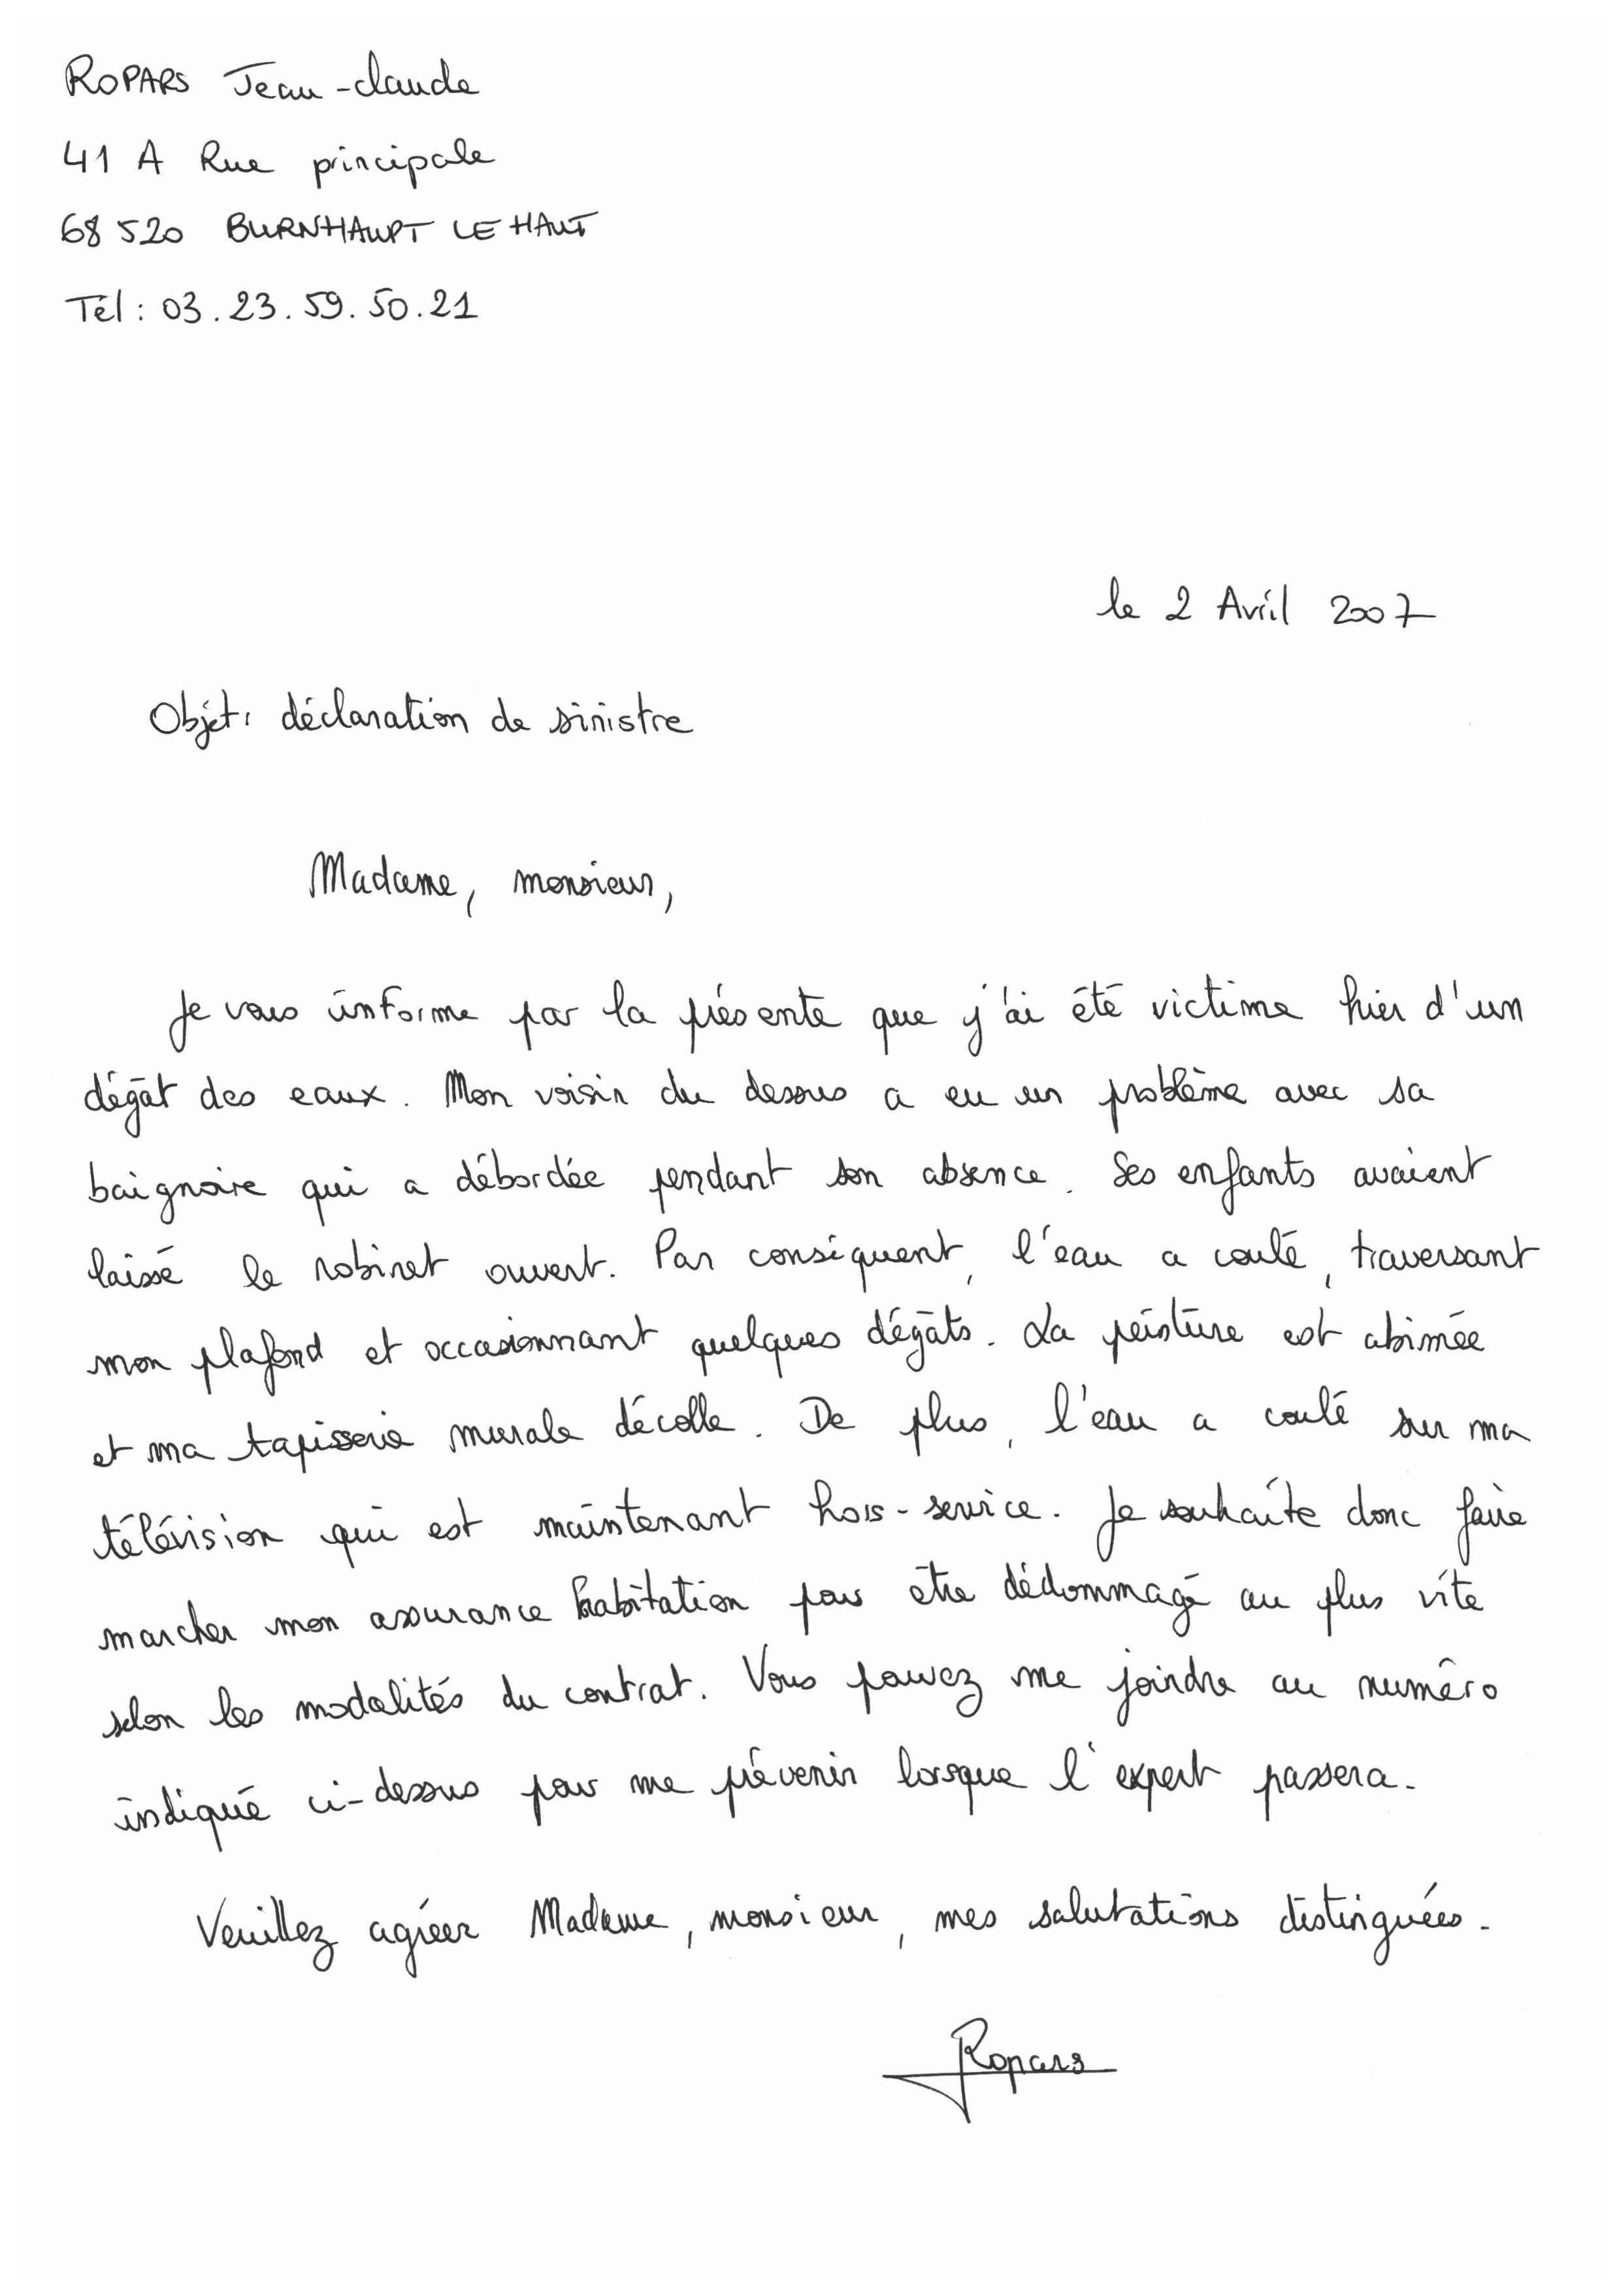 ROPARS Jean-claude
41 A Rue principale
68 520 BURNHAUPT LE HAUT
Tél : 03.23.59.50.21
le 2 Avril 2007
Objet : déclaration de sinistre
Madame, monsieur,
Je vous informe par la présente que j'ai été victime hier d'un
dégât des eaux. Mon voisin du dessus a eu un problème avec sa
baignoire qui a débordée pendant son absence. Ses enfants avaient
laissé le robinet ouvert. Par conséquent, l'eau a coulé, traversant
mon plafond et occasionnant quelques dégâts. La peinture est abimée
et ma tapisserie murale décolle. De plus, l'eau a coulé sur ma
télévision qui est maintenant hors-service. Je souhaite donc faire
marcher mon assurance habitation pour être dédommagé au plus vite
selon les modalités du contrat. Vous pouvez me joindre au numéro
indiqué ci-dessus pour me prévenir lorsque l'expert passera.
Veuillez agréer Madame, monsieur, mes salutations distinguées.
Ropars